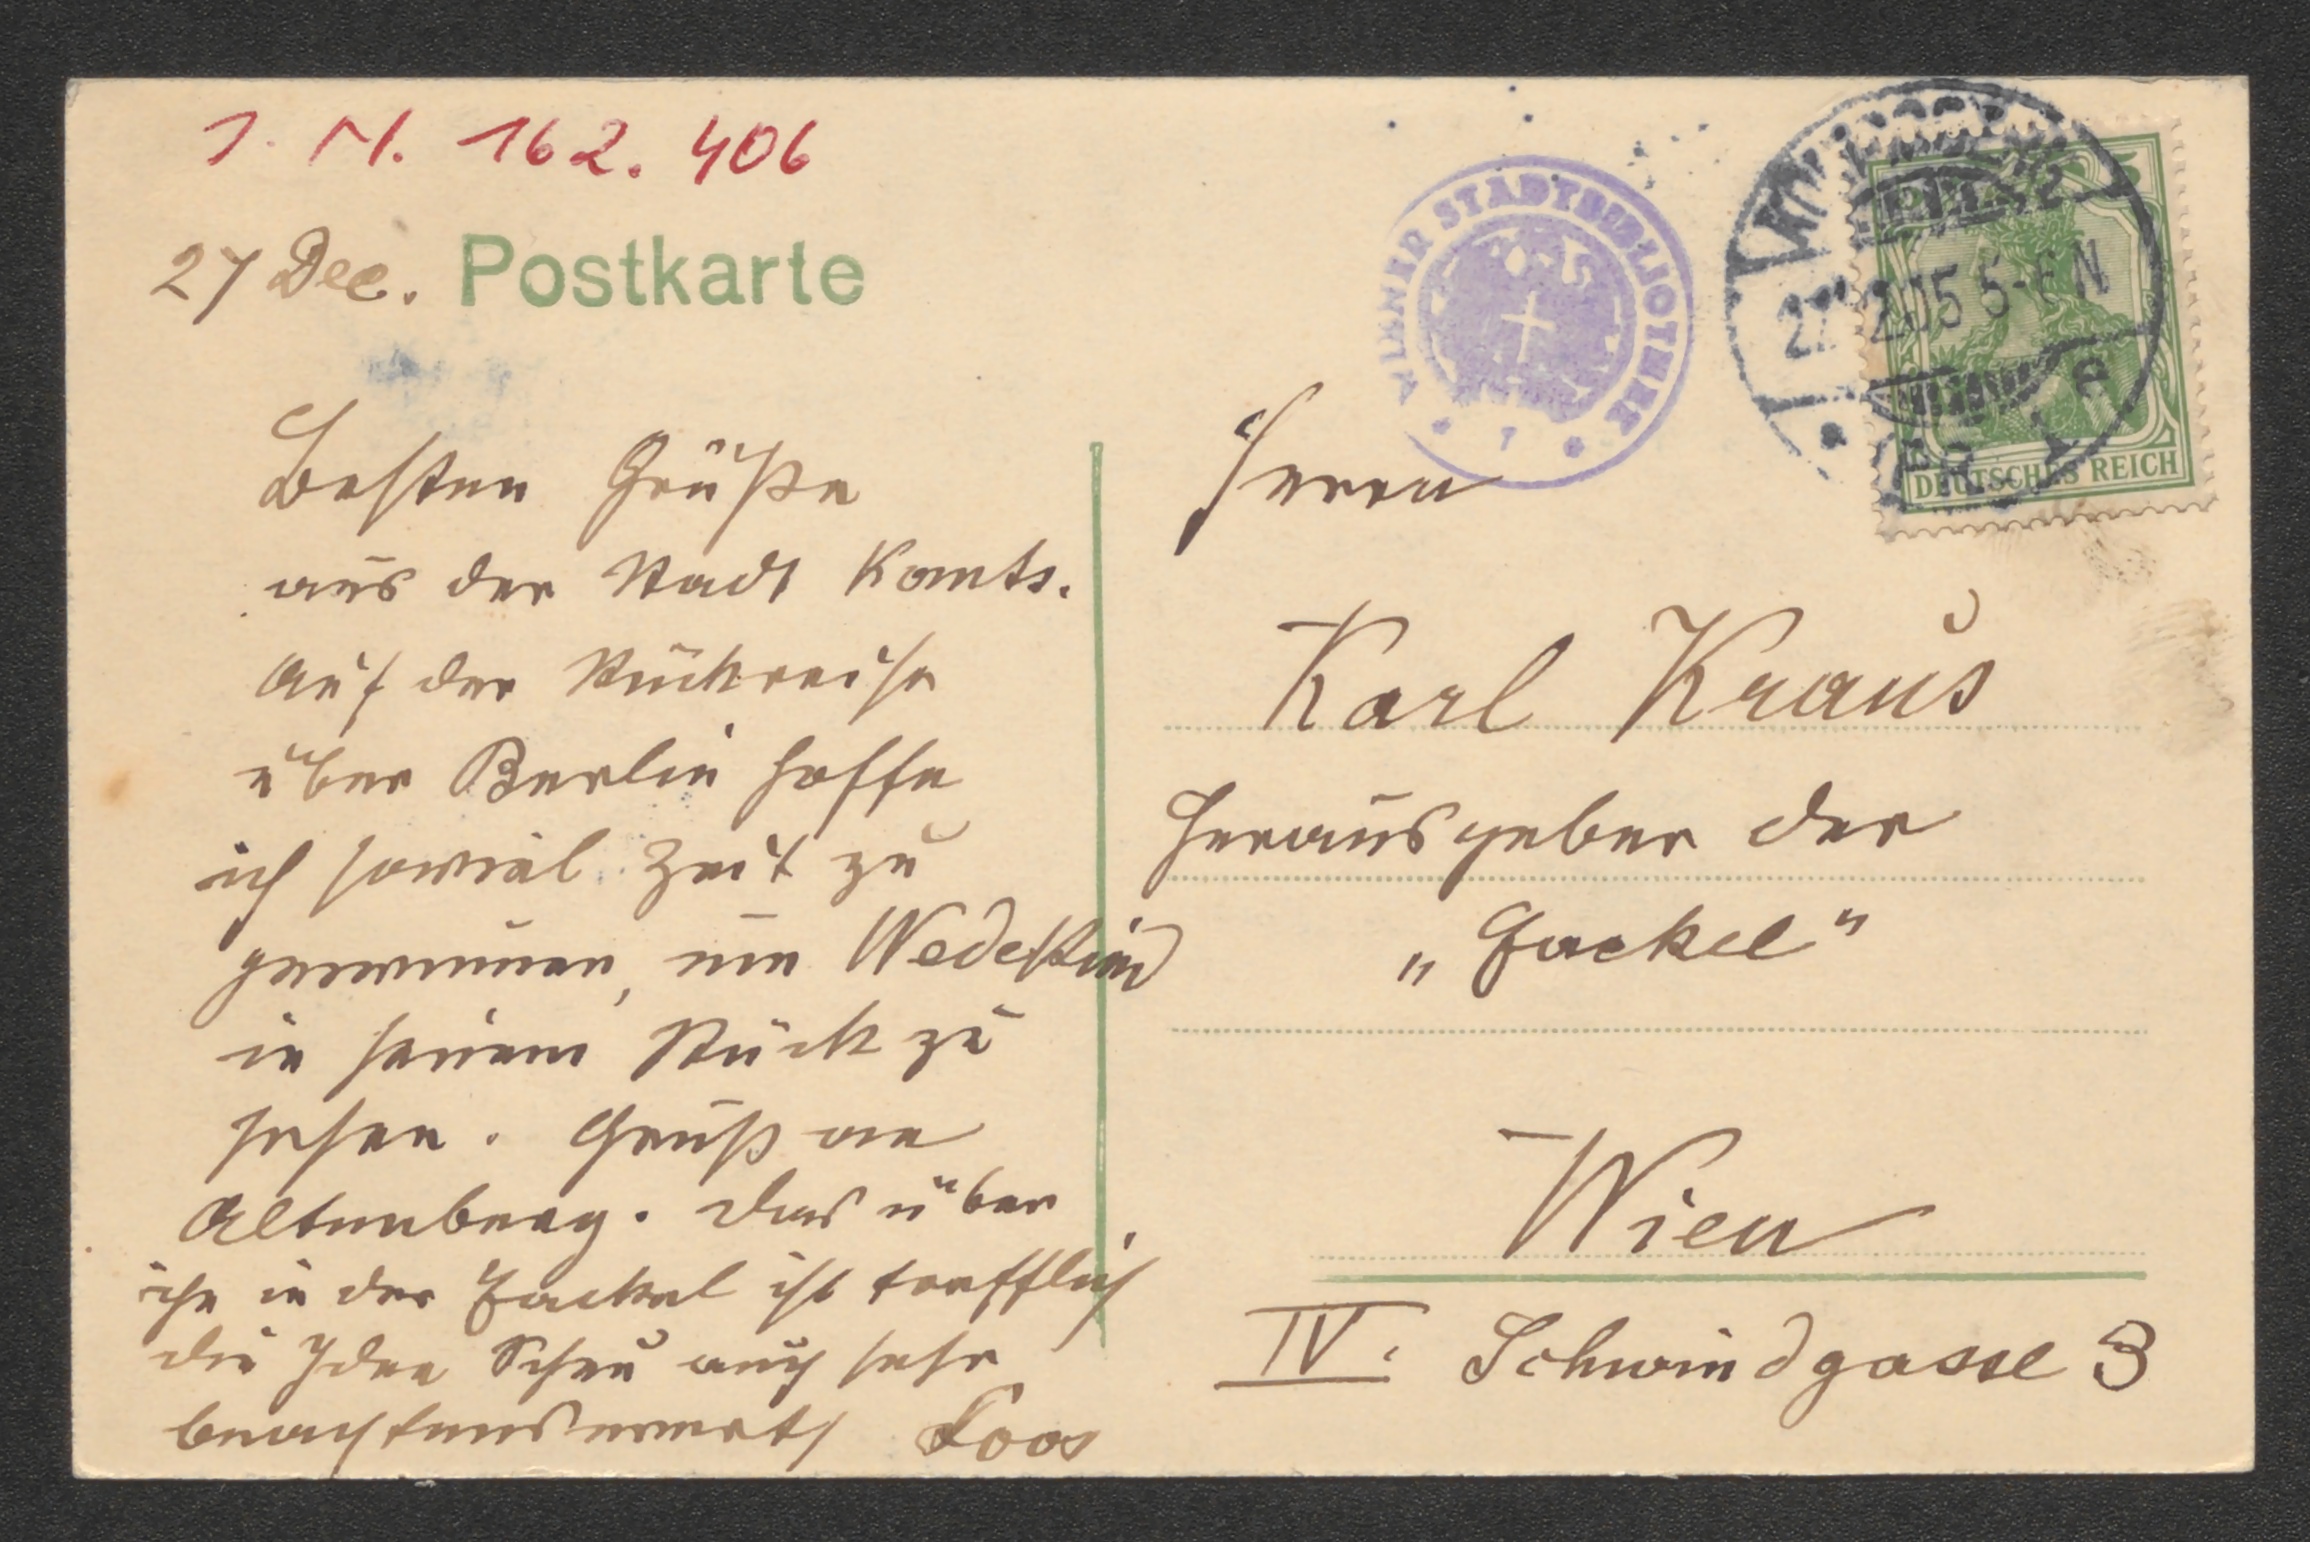 J. N. 162.406
27 Dec. Postkarte
Besten Grüße
aus der Stadt Kants.
Auf der Rückreise
über Berlin hoffe
ich soviel Zeit zu
gewinnen, um Wedekind
in seinem Stück zu
sehen. Gruß an
Altenberg. Das über
ihn in der Fackel ist trefflich
die Idee Scheu auch sehr
beachtenswerth Loos
WIENER STADTBIBLIOTHEK
* 7 *
27 12 05 5-6 N
* 1 e
DEUTSCHES REICH
Herrn
Karl Kraus
Herausgeber der
„Fackel"
Wien
IV. Schwindgasse 3